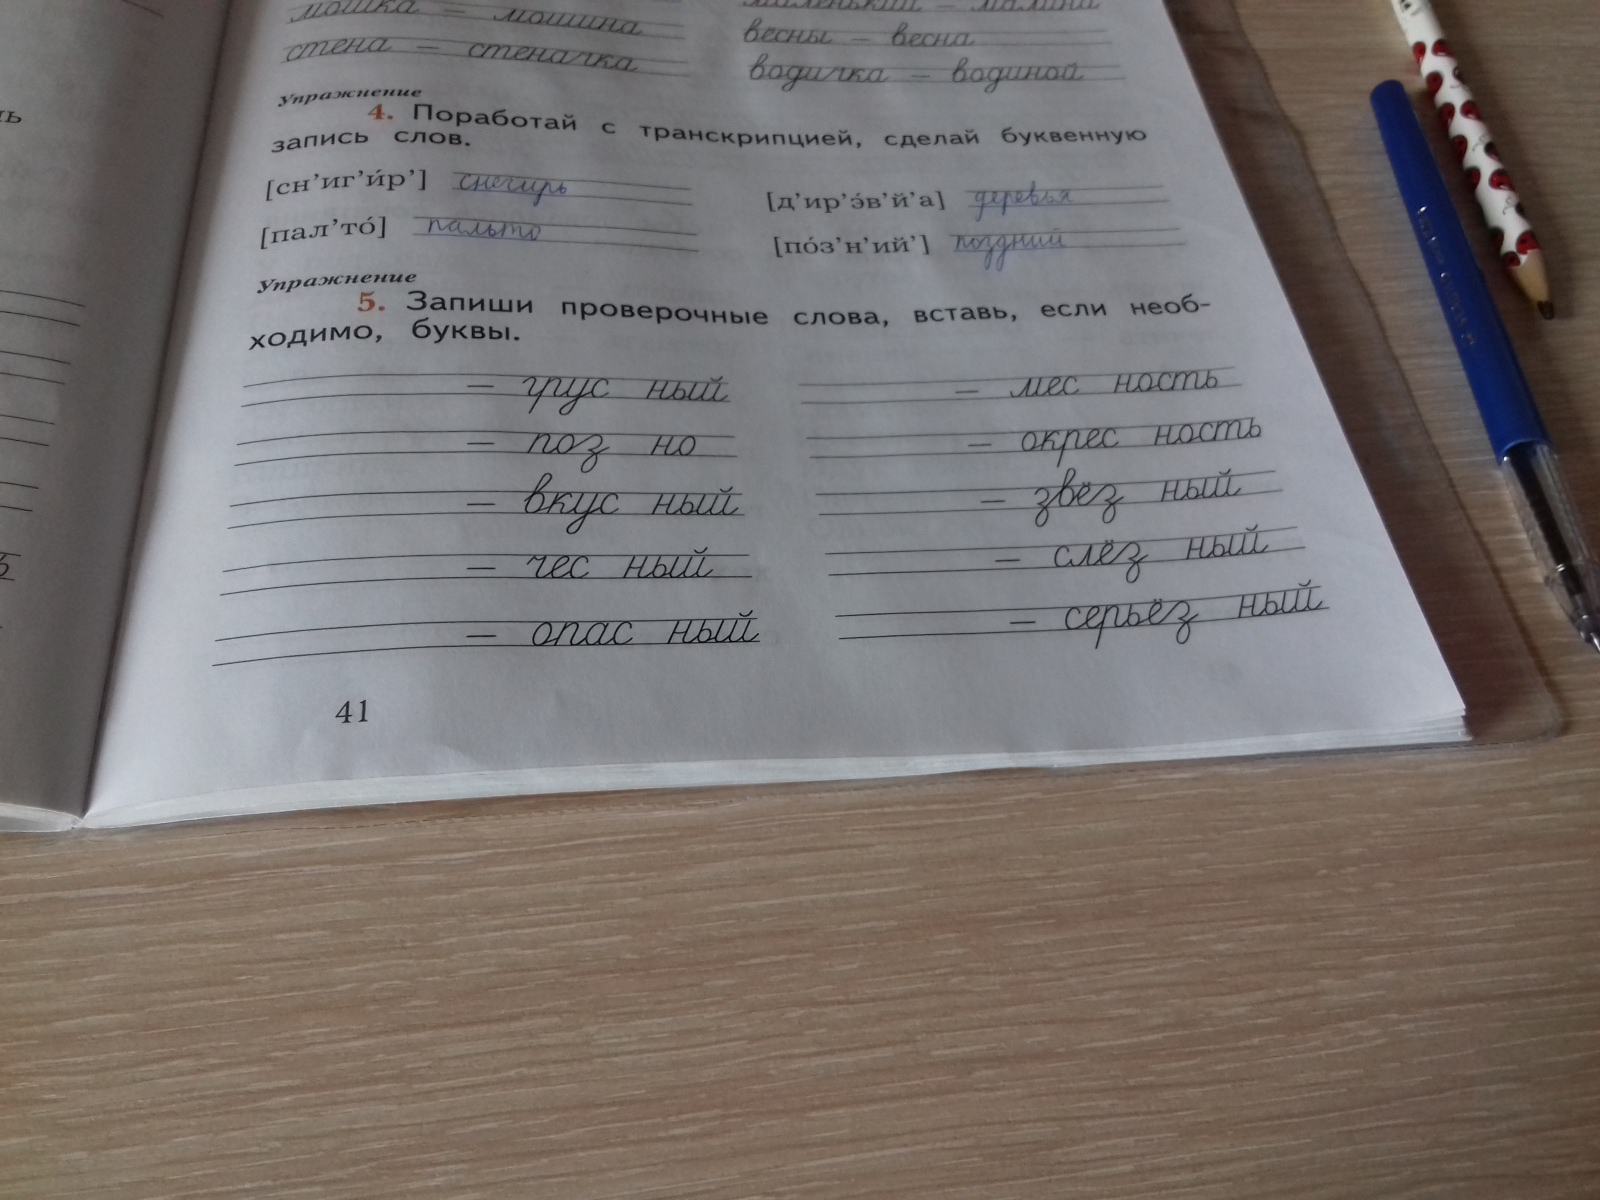 мошка – мошина
стена – стеначка
маленький – малина
весны – весна
водичка – водиной
Упражнение
4. Поработай с транскрипцией, сделай буквенную
запись слов.
[сн’иг’и́р’] снегирь
[д’ир’э́в’й’а] деревья
[пал’то́] пальто
[по́з’н’ий’] поздний
Упражнение
5. Запиши проверочные слова, вставь, если необ-
ходимо, буквы.
– грус ный
– мес ность
– поз но
– окрес ность
– вкус ный
– звёз ный
– чес ный
– слёз ный
– опас ный
– серьёз ный
41